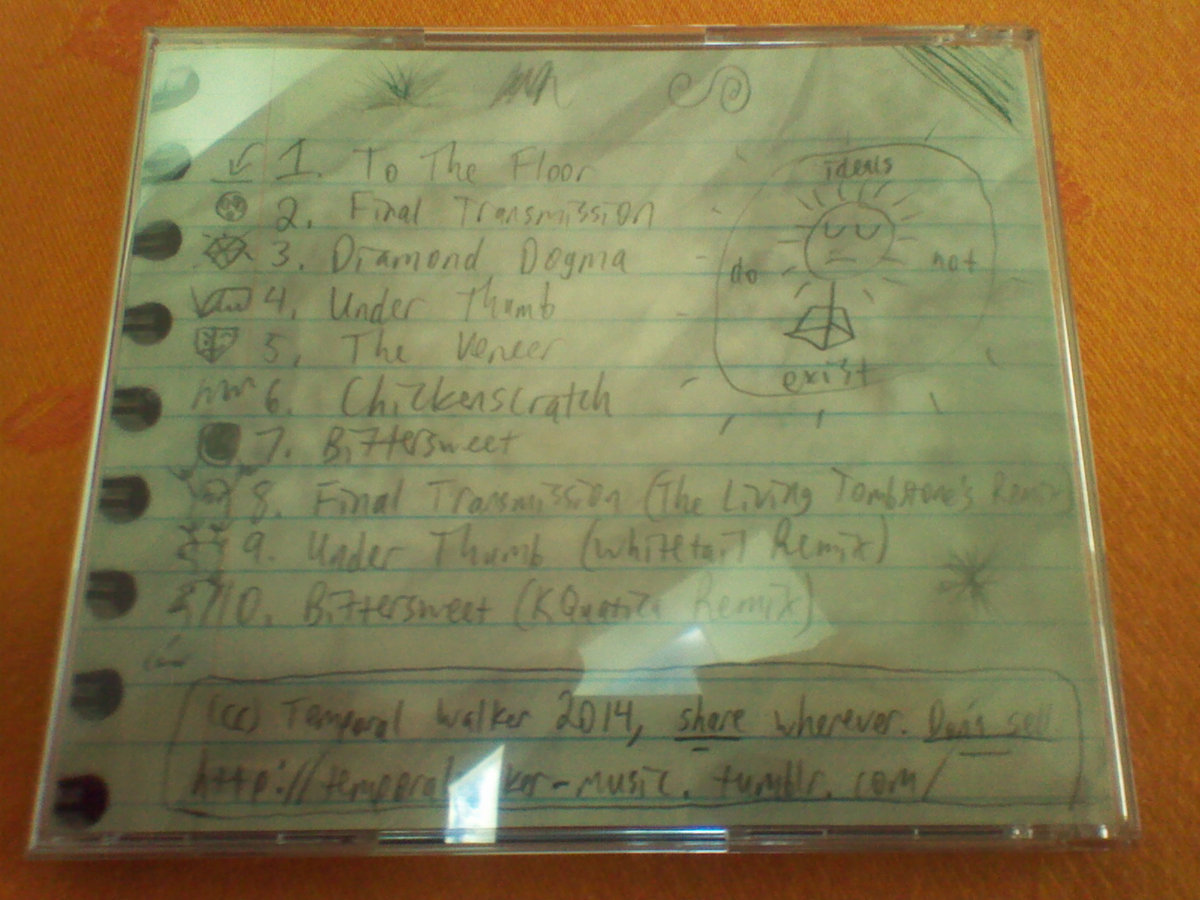 1. To The Floor
2. Final Transmission
3. Diamond Dogma
4. Under Thumb
5. The Veneer
6. Chickenscratch
7. Bittersweet
8. Final Transmission (The Living Tombstone's Remix)
9. Under Thumb (Whitetail Remix)
10. Bittersweet (Remix)
ideals
do not
exist
(cc) Temporal Walker 2014, share wherever. Don't sell
http://temporalwalker-music.tumblr.com/